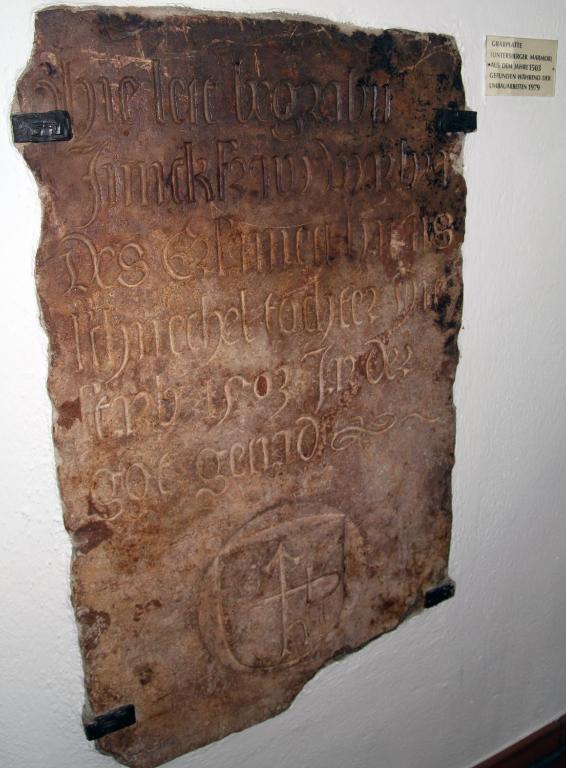 Hie leit begrabn
Junckfraw
Des
tochter Die
starb 1503 Jr der
got genad
GRABPLATTE
(UNTERSBERGER MARMOR)
AUS DEM JAHRE 1503
GEFUNDEN WÄHREND DER
UMBAUARBEITEN 1979